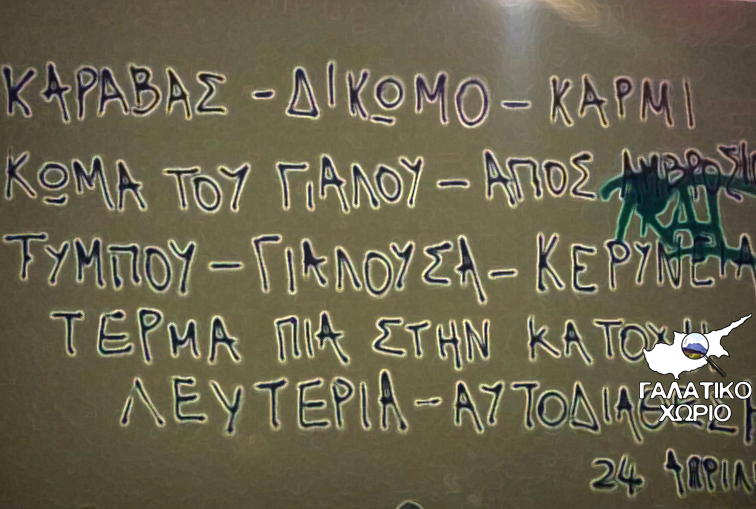 ΚΑΡΑΒΑΣ - ΔΙΚΩΜΟ - ΚΑΡΜΙ
ΚΩΜΑ ΤΟΥ ΓΙΑΛΟΥ - ΑΠΟΣ
ΤΥΜΠΟΥ - ΓΙΑΛΟΥΣΑ - ΚΕΡΥΝΕΙΑ
ΤΕΡΜΑ ΠΙΑ ΣΤΗΝ ΚΑΤΟΧΗ
ΛΕΥΤΕΡΙΑ - ΑΥΤΟΔΙΑΘΕΣΗ
24 ΑΠΡΙΛ
ΓΑΛΑΤΙΚΟ
ΧΩΡΙΟ